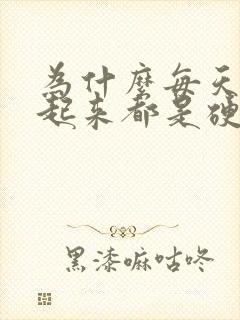 為什麼每天
起来都是硬
黑漆嘛咕咚